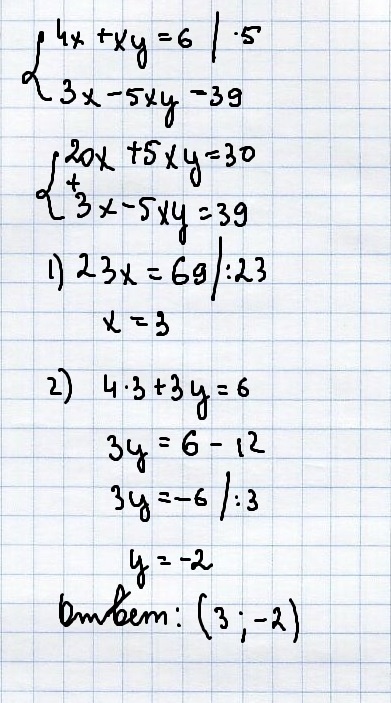 4x + xy = 6 | ·5
3x - 5xy - 39
20x + 5xy = 30
+
3x - 5xy = 39
1) 23x = 69 | :23
x = 3
2) 4·3 + 3y = 6
3y = 6 - 12
3y = -6 | :3
y = -2
Ответ: (3; -2)